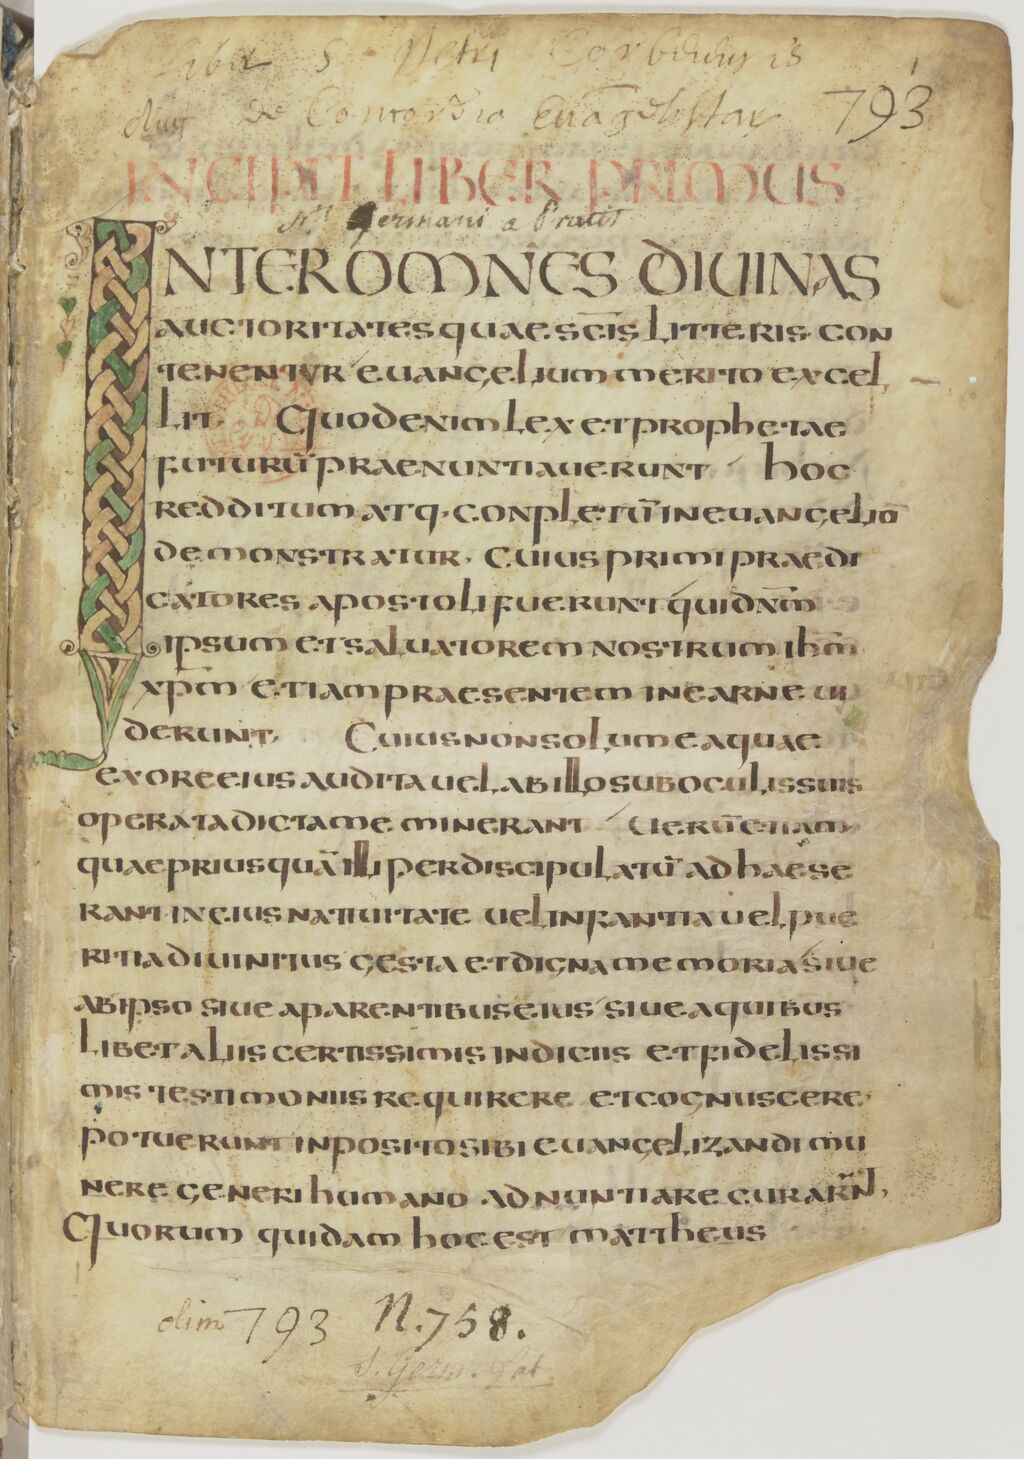 Liber S Petri Corbeiensis
Aug de Concordia Euāgelistar 793
1
INCIPIT LIBER PRIMUS
Sti Germani a Pratis
INTER OMNES DIUINAS
AUCTORITATES QUAE SC̄IS LITTERIS CON
TENENTUR EUANGELIUM MERITO EXCEL
LIT. QUOD ENIM LEX ET PROPHETAE
FUTURŪ PRAENUNTIAUERUNT HOC
REDDITUM ATQ· CONPLETŪ IN EUANGELIO
DEMONSTRATUR. CUIUS PRIMI PRAEDI
CATORES APOSTOLI FUERUNT QUI DN̄M
IPSUM ET SALUATOREM NOSTRUM IHM̄
XPM̄ ETIAM PRAESENTEM IN CARNE UI
DERUNT. CUIUS NON SOLUM EA QUAE
EX ORE EIUS AUDITA UEL AB ILLO SUB OCULIS SUIS
OPERATA DICTA MEMINERANT UERŪ ETIAM
QUAE PRIUS QUĀ ILLI PER DISCIPULATŪ ADHAESE
RANT IN EIUS NATIUITATE UEL INFANTIA UEL PUE
RITIA DIUINITUS GESTA ET DIGNA MEMORIA SIUE
AB IPSO SIUE A PARENTIBUS EIUS SIUE A QUIBUS
LIBET ALIIS CERTISSIMIS INDICIIS ET FIDELISSI
MIS TESTIMONIIS REQUIRERE ET COGNUSCERE
POTUERUNT INPOSITO SIBI EUANGELIZANDI MU
NERE GENERI HUMANO ADNUNTIARE CURARN̄T,
QUORUM QUIDAM HOC EST MATTHEUS
olim 793 N. 758.
S. Germ. Lat.